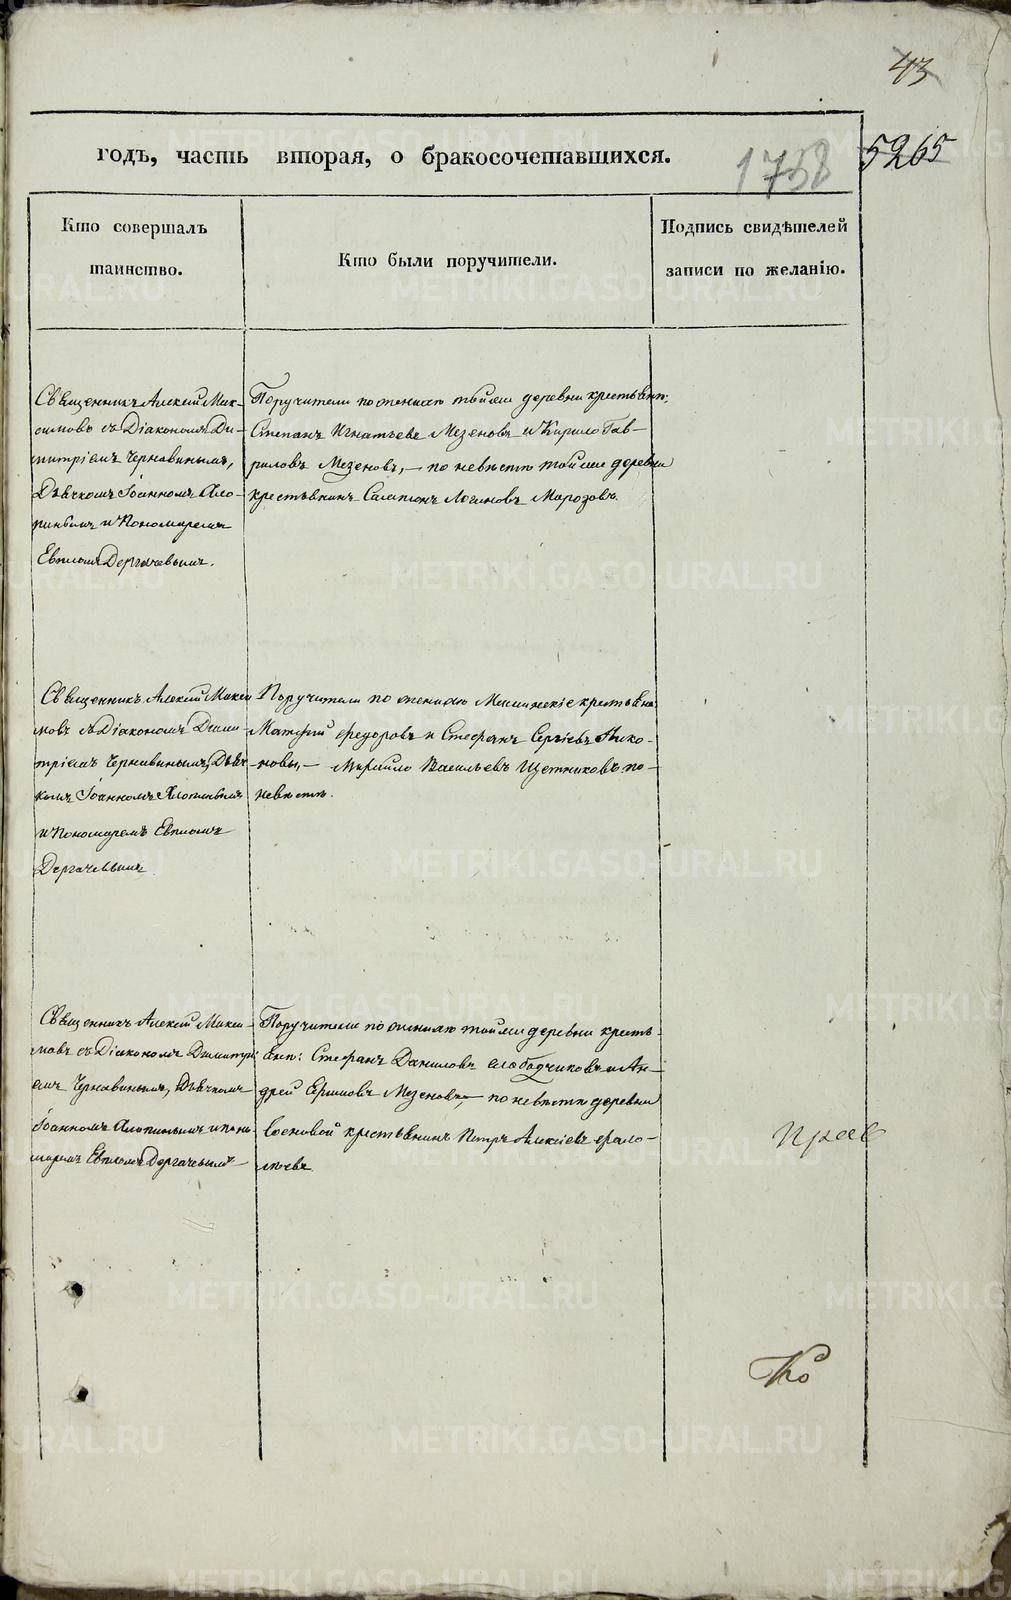 43
годъ, часть вторая, о бракосочетавшихся.
1738
5265
Кто совершалъ
таинство.
Кто были поручители.
Подпись свидѣтелей
записи по желанію.
Священникъ Алексій Мак-
симовъ съ Діакономъ Ди-
митріемъ Чернавинымъ,
Дьячкомъ Іоанномъ
и Пономаремъ
Евпломъ Дергачевымъ.
Поручители по женихѣ тойже деревни крестьян:
Степанъ Игнатьевъ Мезеновъ и Кирило Гав-
риловъ Мезеновъ, — по невѣстѣ тойже деревни
крестьянинъ Логиновъ Морозовъ.
Священникъ Алексій Макси
мовъ съ Діакономъ Дими-
тріемъ Чернавинымъ, Дьяч
комъ Іоанномъ
и Пономаремъ Евпломъ
Дергачевымъ
Поручители по женихѣ крестьяна
Матфей Федоровъ и Стефанъ Сергіевъ Нико-
новы, — Михайло Васильевъ Щетниковъ по
невѣстѣ.
Священникъ Алексій Макси-
мовъ съ Діакономъ Димитрі:
емъ Чернавинымъ, Дьячкомъ
Іоанномъ и поно
маремъ Евпломъ Дергачевымъ
Поручители по женихѣ тойже деревни кресть-
янѣ: Стефанъ Даниловъ Слободчиковъ и Ан-
дрей Мезеновъ, — по невѣстѣ деревни
Сосновой крестьянинъ Петръ Алексіевъ
METRIKI.GASO-URAL.RU